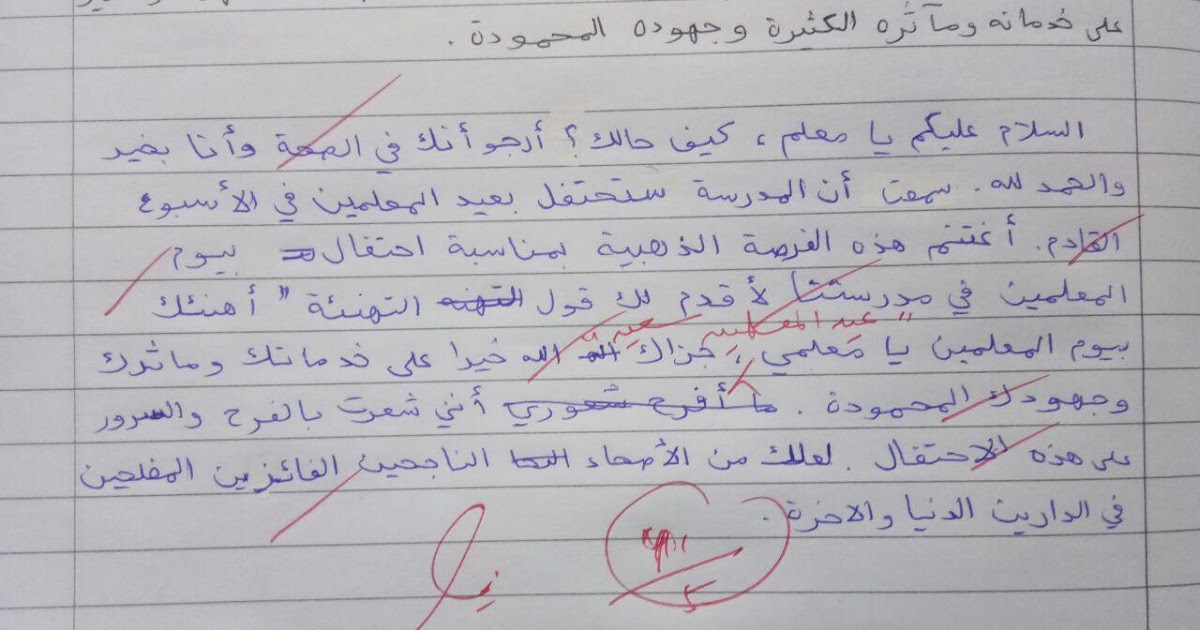 على خدماته ومآثره الكثيرة وجهوده المحمودة .
السلام عليكم يا معلم ، كيف حالك ؟ أرجو أنك في الصحة وأنا بخير
والحمد لله . سمعت أن المدرسة ستحتفل بعيد المعلمين في الأسبوع
القادم . أغتنم هذه الفرصة الذهبية بمناسبة احتفال بيوم
المعلمين في مدرستنا لأقدم لك قول التهنئة " أهنئك
عيد المعلمين سعيد
بيوم المعلمين يا معلمي " ، جزاك الله خيرا على خدماتك وماثرك
وجهودك المحمودة . ما أفرح شعوري أنني شعرت بالفرح والسرور
على هذه الاحتفال . لعلك من الأصحاء الناجحين الفائزين المفلحين
في الدارين الدنيا والاخرة .
5